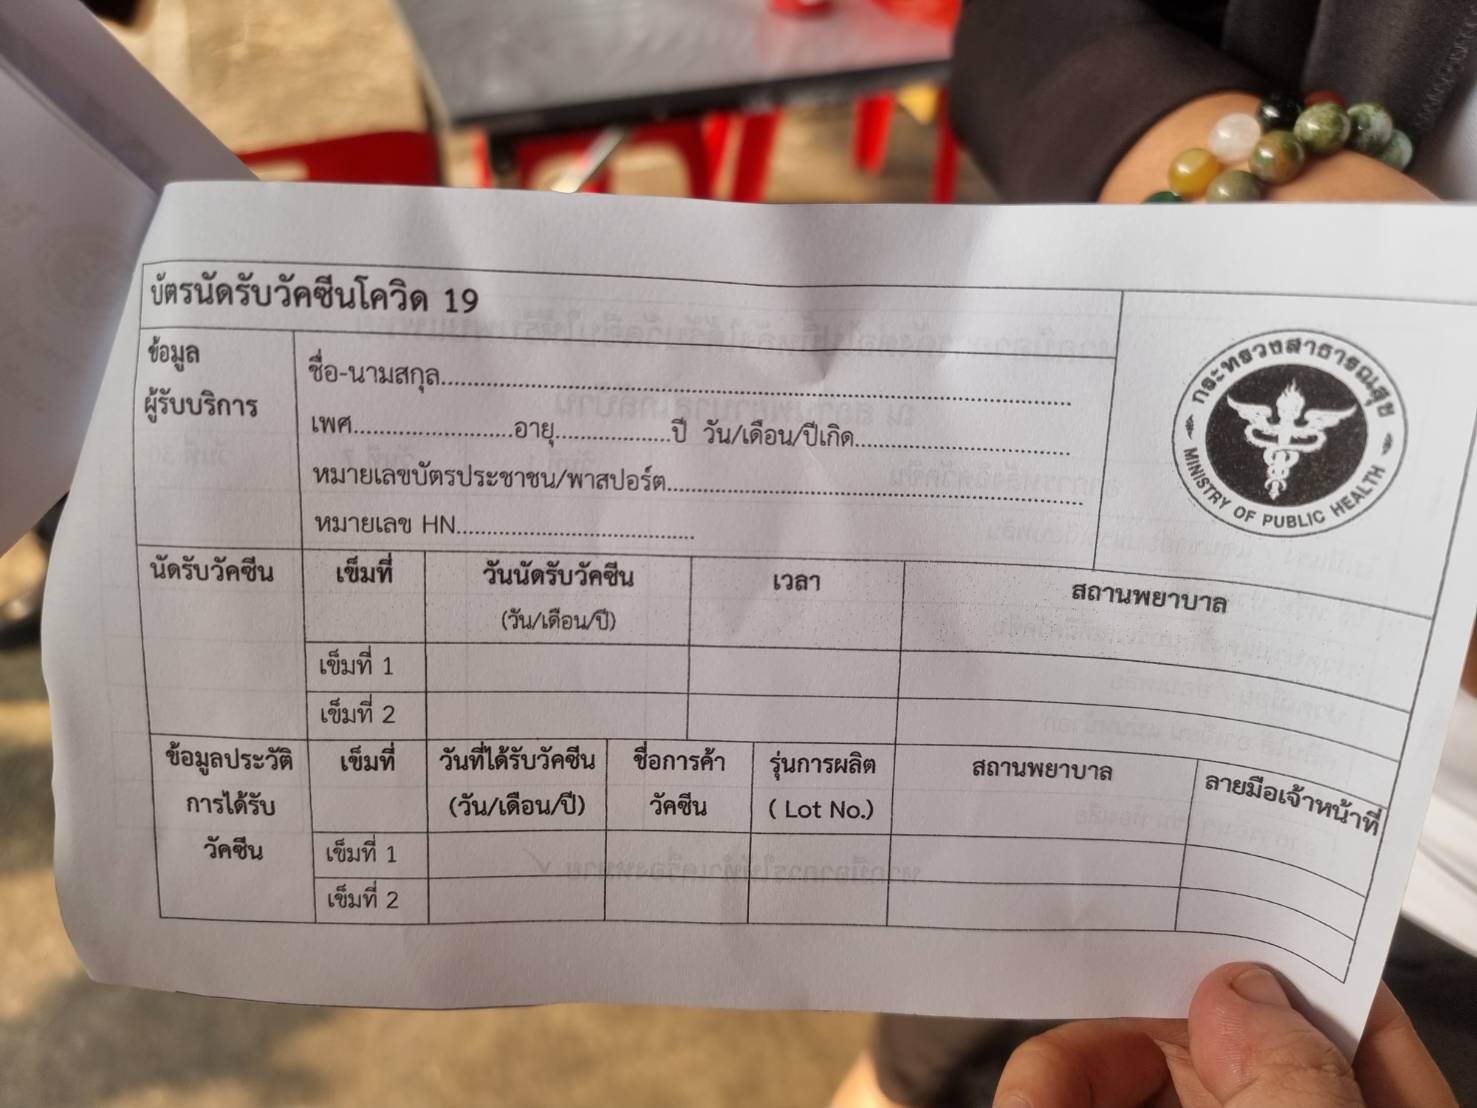 บัตรนัดรับวัคซีนโควิด 19
กระทรวงสาธารณสุข
MINISTRY OF PUBLIC HEALTH
ข้อมูล
ผู้รับบริการ
ชื่อ-นามสกุล
เพศ อายุ ปี วัน/เดือน/ปีเกิด
หมายเลขบัตรประชาชน/พาสปอร์ต
หมายเลข HN
นัดรับวัคซีน เข็มที่ วันนัดรับวัคซีน เวลา สถานพยาบาล
(วัน/เดือน/ปี)
เข็มที่ 1
เข็มที่ 2
ข้อมูลประวัติ เข็มที่ วันที่ได้รับวัคซีน ชื่อการค้า รุ่นการผลิต สถานพยาบาล ลายมือเจ้าหน้าที่
การได้รับ (วัน/เดือน/ปี) วัคซีน ( Lot No.)
วัคซีน เข็มที่ 1
เข็มที่ 2